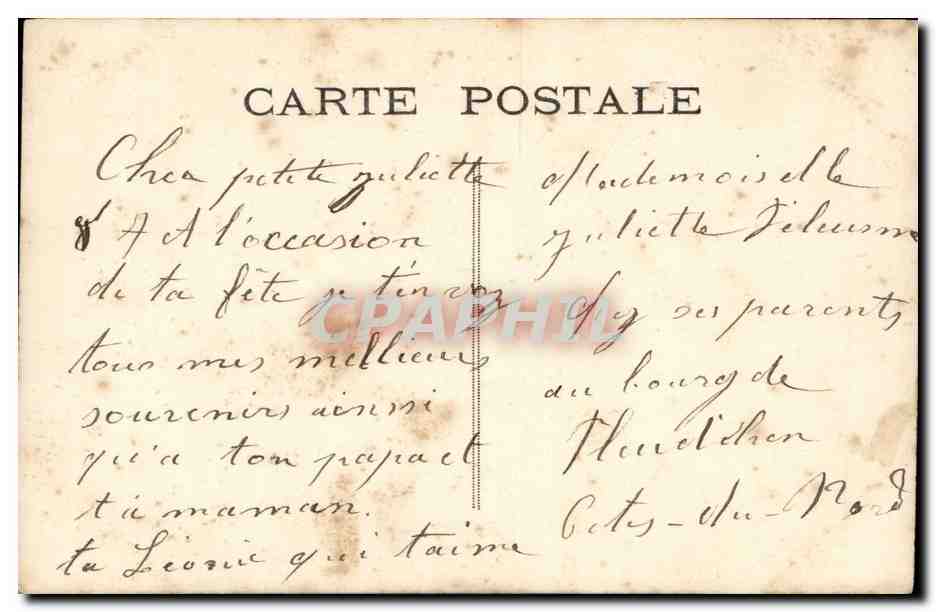 CARTE POSTALE
Chea petite juliette
A l'occasion
de ta fête je t'envoy
tous mes mellieurs
souvenirs ainssi
qu'a ton papa et
ta maman.
ta Léonie qui t'aime
Mademoiselle
juliette
chez ses parents
au bourg de
Pleudihen
Cotes-du-Nord
CPAPHIL